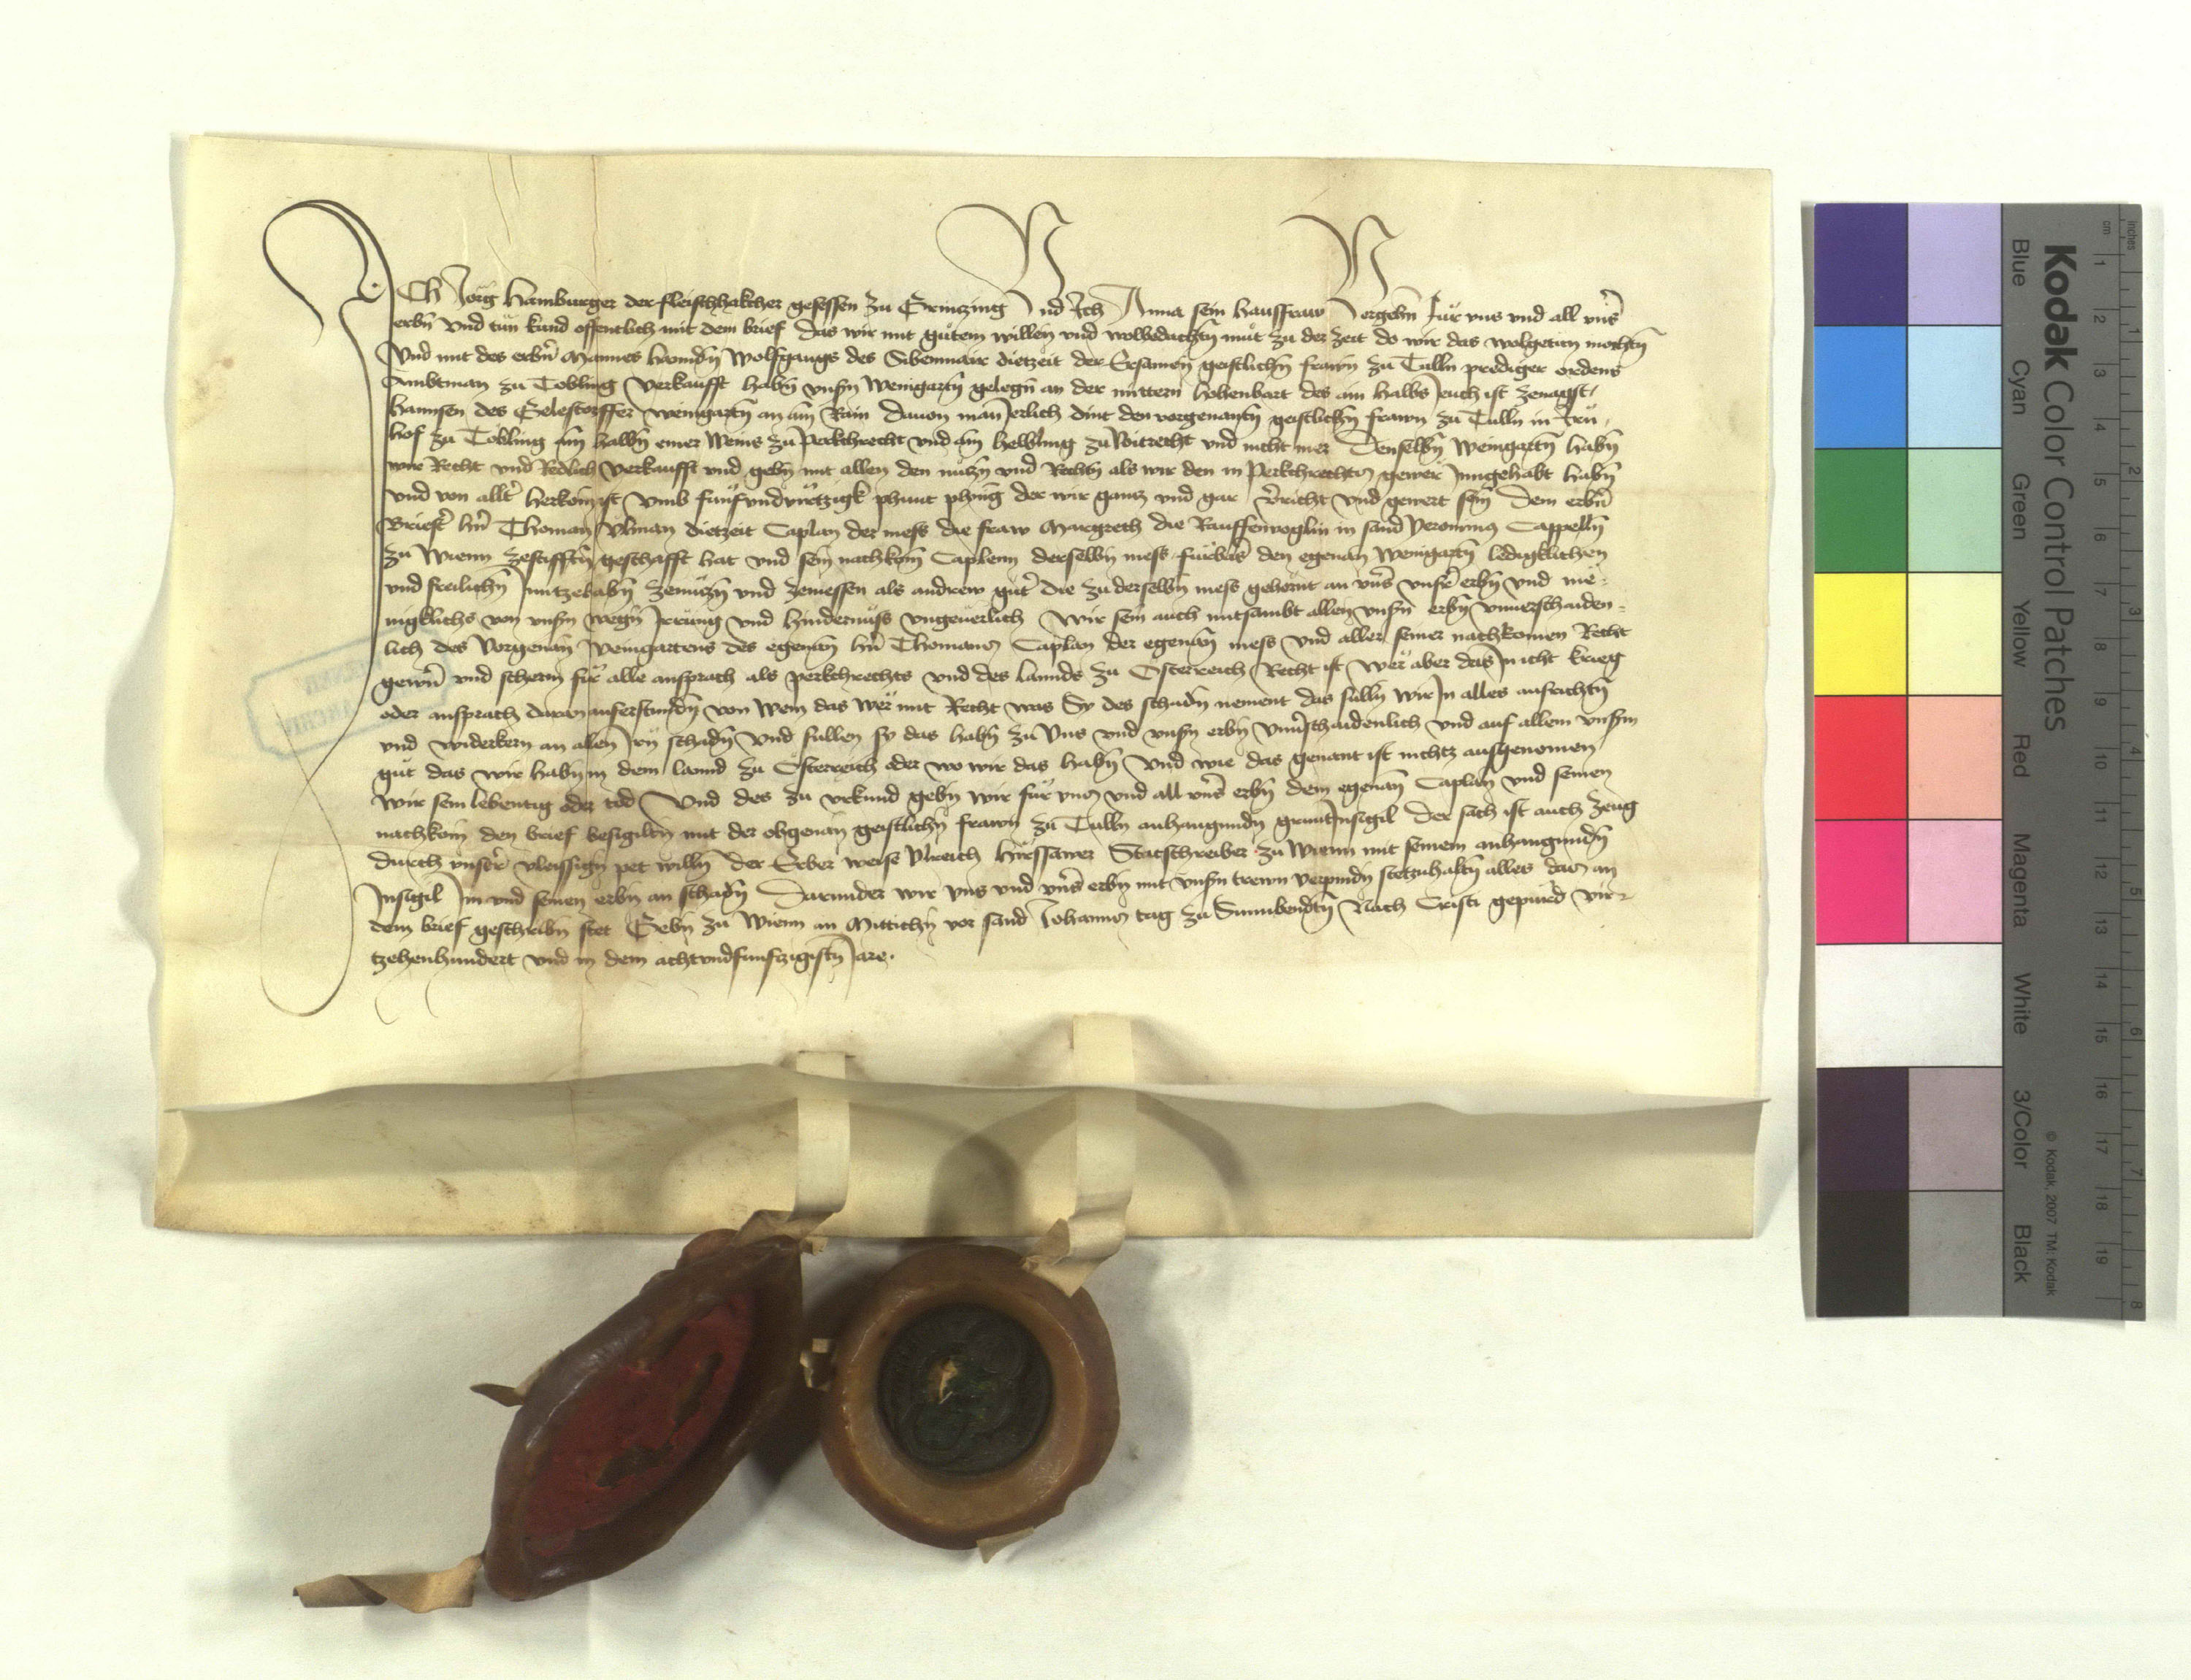 Ich Jorg Hamburger der fleischhakcher gesessen zu Grinczing Und Ich Anna sein hausfraw Vergehn für uns und all unser
erbn und tün kund offentlich mit dem brief das wir mit gütem willen und wolbedachtn müt zu der zeit do wir das wolgetün mochtn
Und mit des erbern Mannes hannden Wolfgangs des Sibenmair dietzeit der Ersamen geistlichn frawn zu Tulln prediger ordens
Ambtman zu Tobling verkaufft habn unsern weingartn gelegn an der mittern hohenbart des ain halbs Jeuch ist zenagst
hannsen des weingartn an aim Rain dauon man Jerlich dint den vorgenantn geistlichn frawn zu Tulln in Irn
hof zu Tobling ain halbn emer Weins zu perkchrecht und ain helbling zu Voitrecht und nicht mer Denselbn weingartn habn
wir Recht und Redlich verkaufft und gebn mit allen den nützn und Rechtn als wir den in perkchrechtes gewer Inngehabt habn
und von allter herkomen ist Umb fünfundvirtzigk phunt phennig der wir gantz und gar verricht und gewert sein Dem erbern
Briester hern Thoman Ulman dietzeit Caplan der mess die fraw Margreth die in sand Jeronimus Cappelln
zu Wienn zestifftn geschafft hat und sein nachkomen Caplenn derselbn mess fürbaser den egenan weingartn ledigklichen
und freilichn Innzehabn zenützn und zeniessen als andrew güter die zu derselbn mess gehörnt an unser unsrer erbn und me-
nigklichs von unsern wegn Irrung und hindernüss ungeuerlich Wir sein auch mitsambt allen unsern erbn unuerschaiden-
lich des vorgenan weingartens des egenan hern Thomans Caplan der egenan mess und aller seiner nachkomen Recht
gewern und scherm für alle ansprach als perkchrechts und des lannds zu Osterreich Recht ist Wer aber das In icht krieg
oder ansprach daran auferstundn von wem das wer mit Recht was Sy des schadn nement das sulln wir In alles ausrichtn
und widerkern an allen Irn schadn Und sullen sy das habn zu uns und unsern erbn unuerschaidenlich und auf allem unserm
gut das wir habn in dem lannd zu Osterreich oder wo wir das habn Und wie das genant ist nichtz ausgenomen
wir sein lebentig oder tod Und des zu urkund gebn wir für uns und all unser erbn dem egenan Caplan und seinen
nachkomen den brief besigiltn mit der obgenan geistlichn frawn zu Tulln anhangundn gruntInsigil Der sach ist auch zeug
durch unser vleissign pet willn der Erber weise Ulreich Hirssawer Statschreiber zu Wienn mit seinem anhangundn
Insigil Im und seinen erbn an schadn Darunder wir uns und unser erbn mit unsern trewn verpindn stetzuhaltn alles das an
dem brief geschribn stet Gebn zu Wienn an Mittichn vor sand Johanns tag zu Sunnbendtn Nach Cristi gepurd vir-
tzehenhundert und in dem achtundfunfzigistn Jare.
Kodak Color Control Patches
Blue Cyan Green Yellow Red Magenta White 3/Color Black
© Kodak, 2007 TM: Kodak
inches 1 2 3 4 5 6 7 8
cm 1 2 3 4 5 6 7 8 9 10 11 12 13 14 15 16 17 18 19